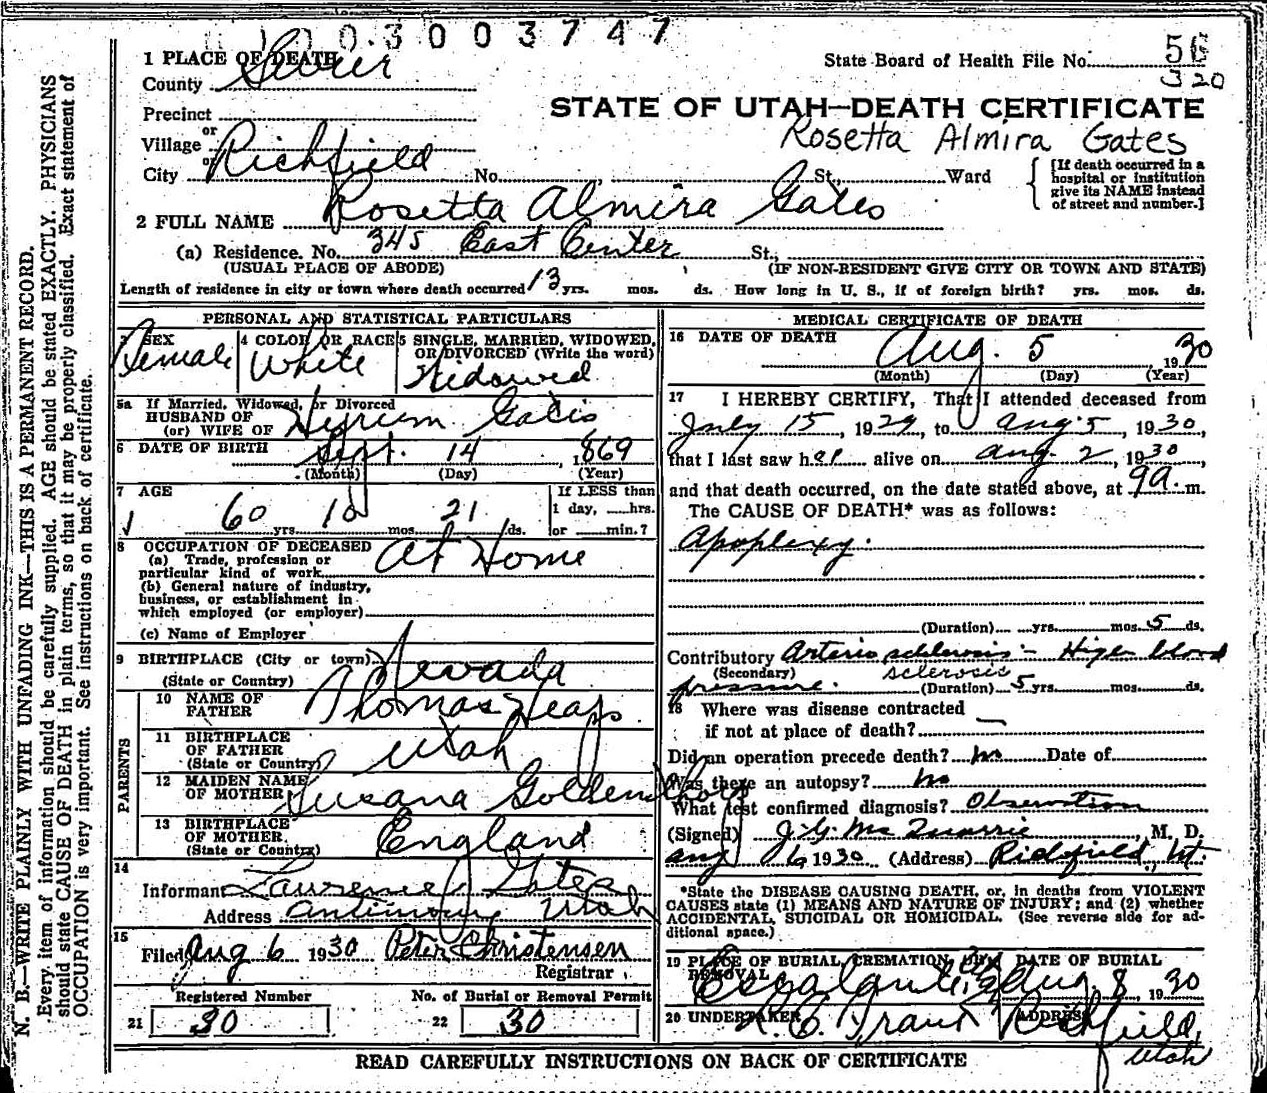 003003747
1 PLACE OF DEATH
County Sevier
State Board of Health File No. 56
320
STATE OF UTAH—DEATH CERTIFICATE
Rosetta Almira Gates
Precinct
or
Village
or
City Richfield No. , St. Ward
[If death occurred in a hospital or institution give its NAME instead of street and number.]
2 FULL NAME Rosetta Almira Gates
(a) Residence. No. 345 East Center St.,
(USUAL PLACE OF ABODE) (IF NON-RESIDENT GIVE CITY OR TOWN AND STATE)
Length of residence in city or town where death occurred 13 yrs. mos. ds. How long in U. S., if of foreign birth? yrs. mos. ds.
PERSONAL AND STATISTICAL PARTICULARS
3 SEX Female
4 COLOR OR RACE White
5 SINGLE, MARRIED, WIDOWED, OR DIVORCED (Write the word) Widowed
5a If Married, Widowed, or Divorced
HUSBAND OF
(or) WIFE OF Hyrum Gates
6 DATE OF BIRTH Sept. 14, 1869
(Month) (Day) (Year)
7 AGE 60 yrs. 10 mos. 21 ds.
If LESS than
1 day, hrs.
or min.?
8 OCCUPATION OF DECEASED At Home
(a) Trade, profession or
particular kind of work
(b) General nature of industry,
business, or establishment in
which employed (or employer)
(c) Name of Employer
9 BIRTHPLACE (City or town) Nevada
(State or Country)
PARENTS
10 NAME OF FATHER Thomas Heaps
11 BIRTHPLACE OF FATHER (State or Country) Utah
12 MAIDEN NAME OF MOTHER Susana Goldenthorp
13 BIRTHPLACE OF MOTHER (State or Country) England
14
Informant Lawrence Gates
Address Antimony Utah
15
Filed Aug 6 1930 Peter Christensen
Registrar
Registered Number
21 30
No. of Burial or Removal Permit
22 30
MEDICAL CERTIFICATE OF DEATH
16 DATE OF DEATH Aug. 5 1930
(Month) (Day) (Year)
17 I HEREBY CERTIFY, That I attended deceased from
July 15, 1929, to Aug 5, 1930,
that I last saw her alive on Aug. 2, 1930
and that death occurred, on the date stated above, at 9a. m.
The CAUSE OF DEATH* was as follows:
Apoplexy.
(Duration) yrs. mos. 5 ds.
Contributory Arterio schlerosis - High blood
(Secondary) sclerosis
pressure. (Duration) 5 yrs. mos. ds.
18 Where was disease contracted
if not at place of death?
Did an operation precede death? no Date of
Was there an autopsy? no
What test confirmed diagnosis? Observation
(Signed) J. G. McQuarrie, M. D.
Aug 6 1930 (Address) Richfield, Ut.
*State the DISEASE CAUSING DEATH, or, in deaths from VIOLENT
CAUSES state (1) MEANS AND NATURE OF INJURY; and (2) whether
ACCIDENTAL, SUICIDAL OR HOMICIDAL. (See reverse side for ad-
ditional space.)
19 PLACE OF BURIAL, CREMATION, OR REMOVAL Escalante,
DATE OF BURIAL Aug. 8 1930
20 UNDERTAKER
ADDRESS Richfield,
Utah
READ CAREFULLY INSTRUCTIONS ON BACK OF CERTIFICATE
N. B.—WRITE PLAINLY WITH UNFADING INK—THIS IS A PERMANENT RECORD.
Every item of information should be carefully supplied. AGE should be stated EXACTLY. PHYSICIANS
should state CAUSE OF DEATH in plain terms, so that it may be properly classified. Exact statement of
OCCUPATION is very important. See instructions on back of certificate.